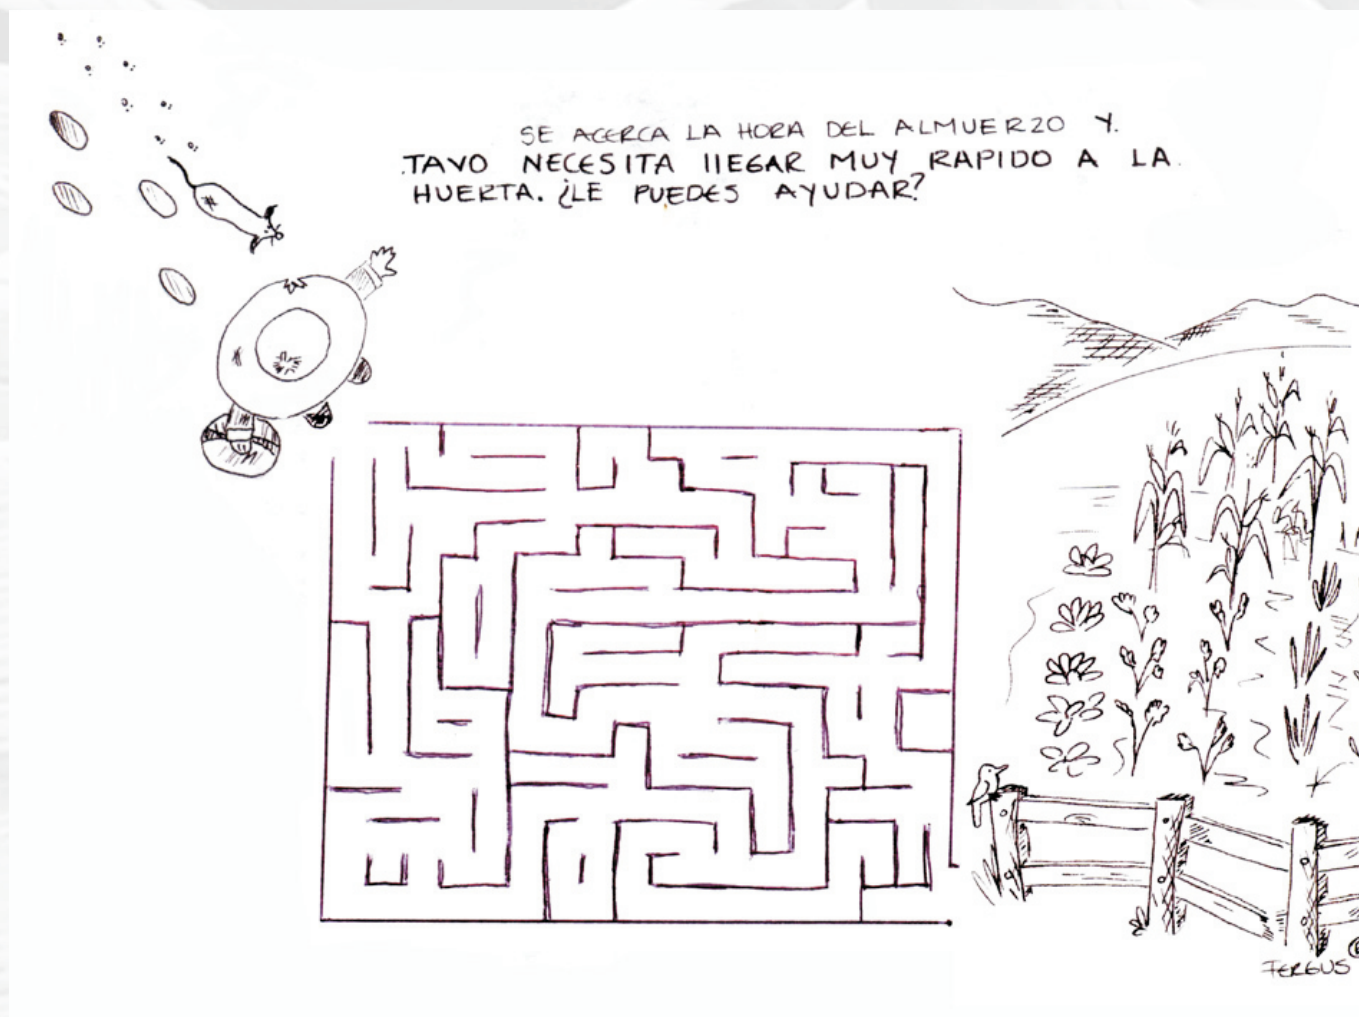 SE ACERCA LA HORA DEL ALMUERZO Y
TAVO NECESITA llEGAR MUY RAPIDO A LA
HUERTA. ¿LE PUEDES AYUDAR?
FERGUS